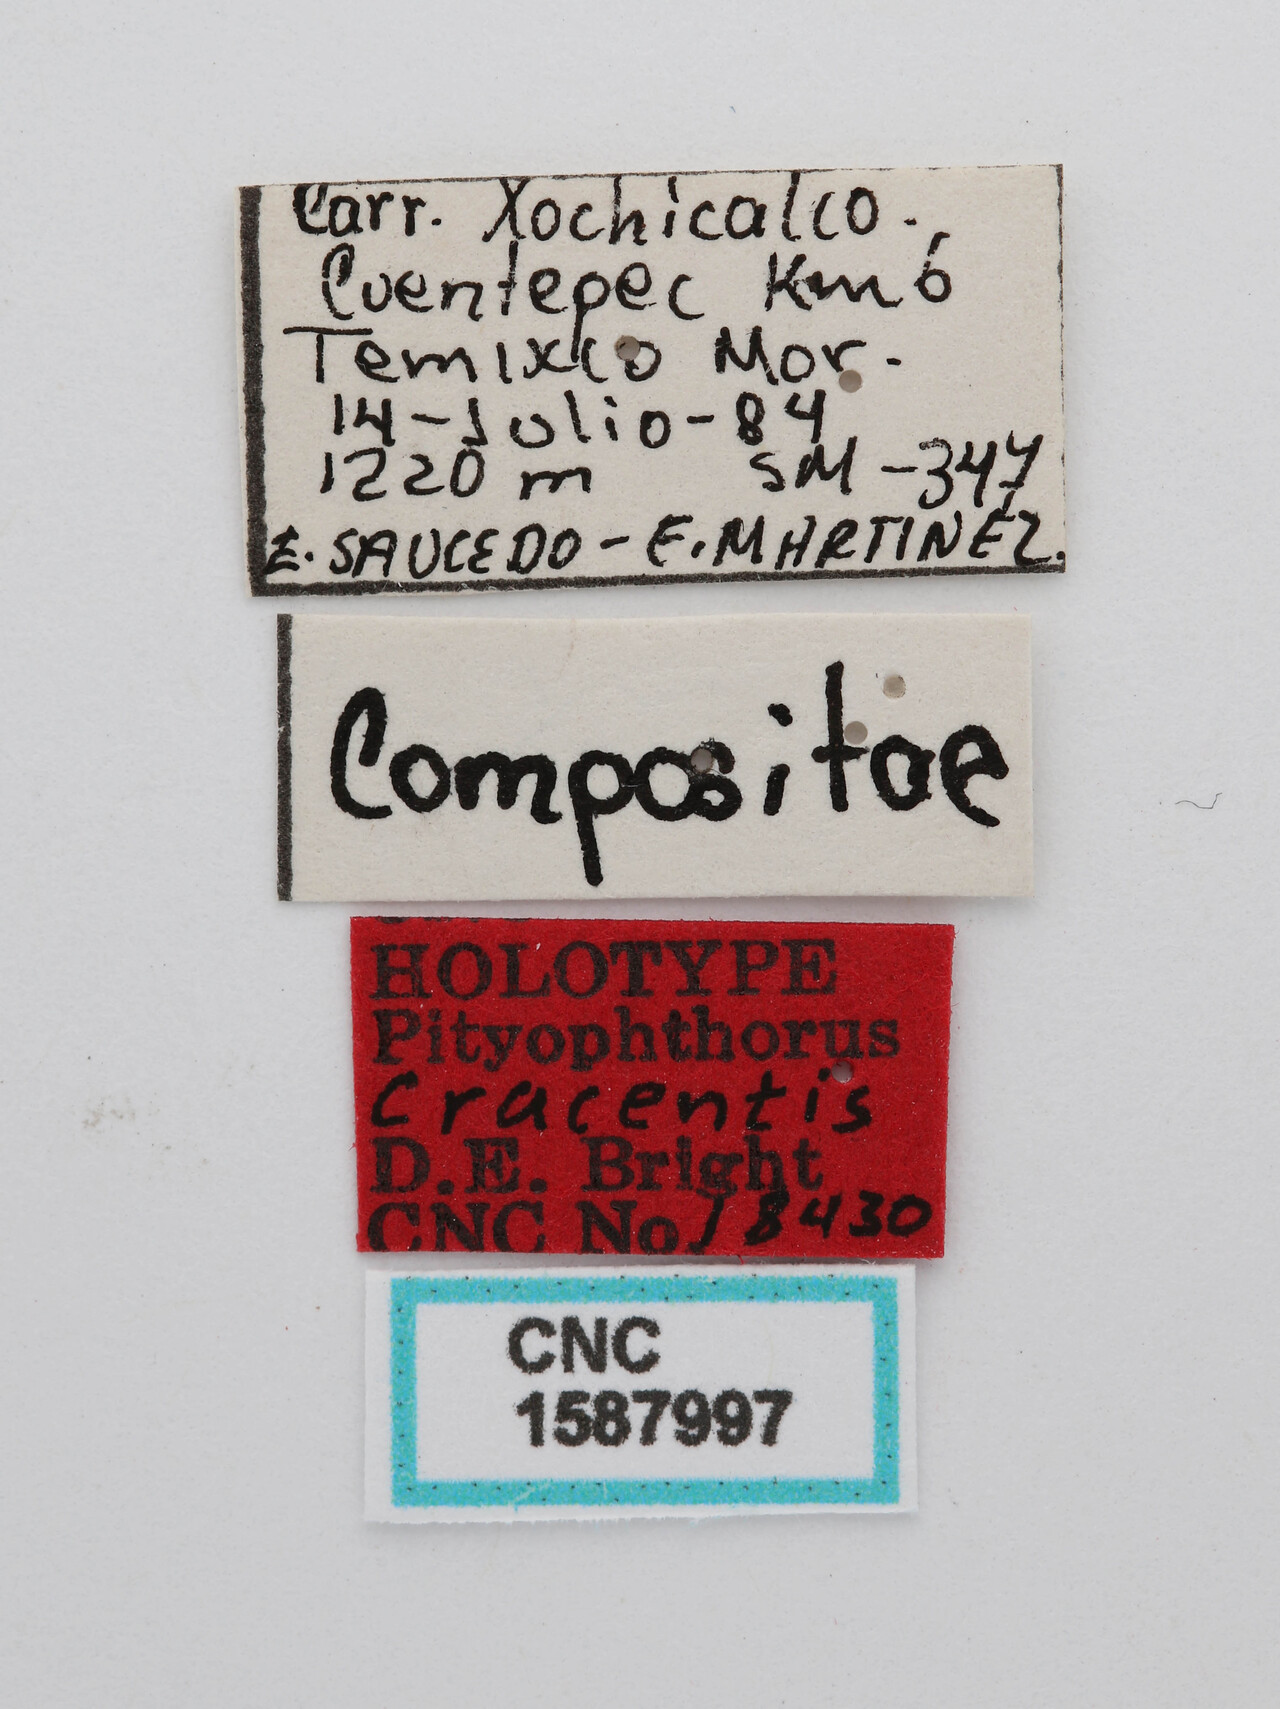 Carr. Xochicalco.
Cuentepec Km 6
Temixco Mor.
14-Julio-84
1220 m SM-347
E. SAUCEDO - E. MARTINEZ.
Compositae
HOLOTYPE
Pityophthorus
cracentis
D.E. Bright
CNC No. 18430
CNC
1587997